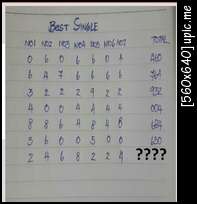 BEST SINGLE
NO1 NO2 NO3 NO4 NO5 NO6 NO7 TOTAL
0 6 0 6 6 0 460
6 4 7 6 6 6 6
3 2 2 2 9 2 932
4 0 0 4 4 4 4 004
8 8 6 8 4 8
3 6 0 0 5 0 0 650
2 4 6 8 2 2 9 ????
[560x640] uplc.me